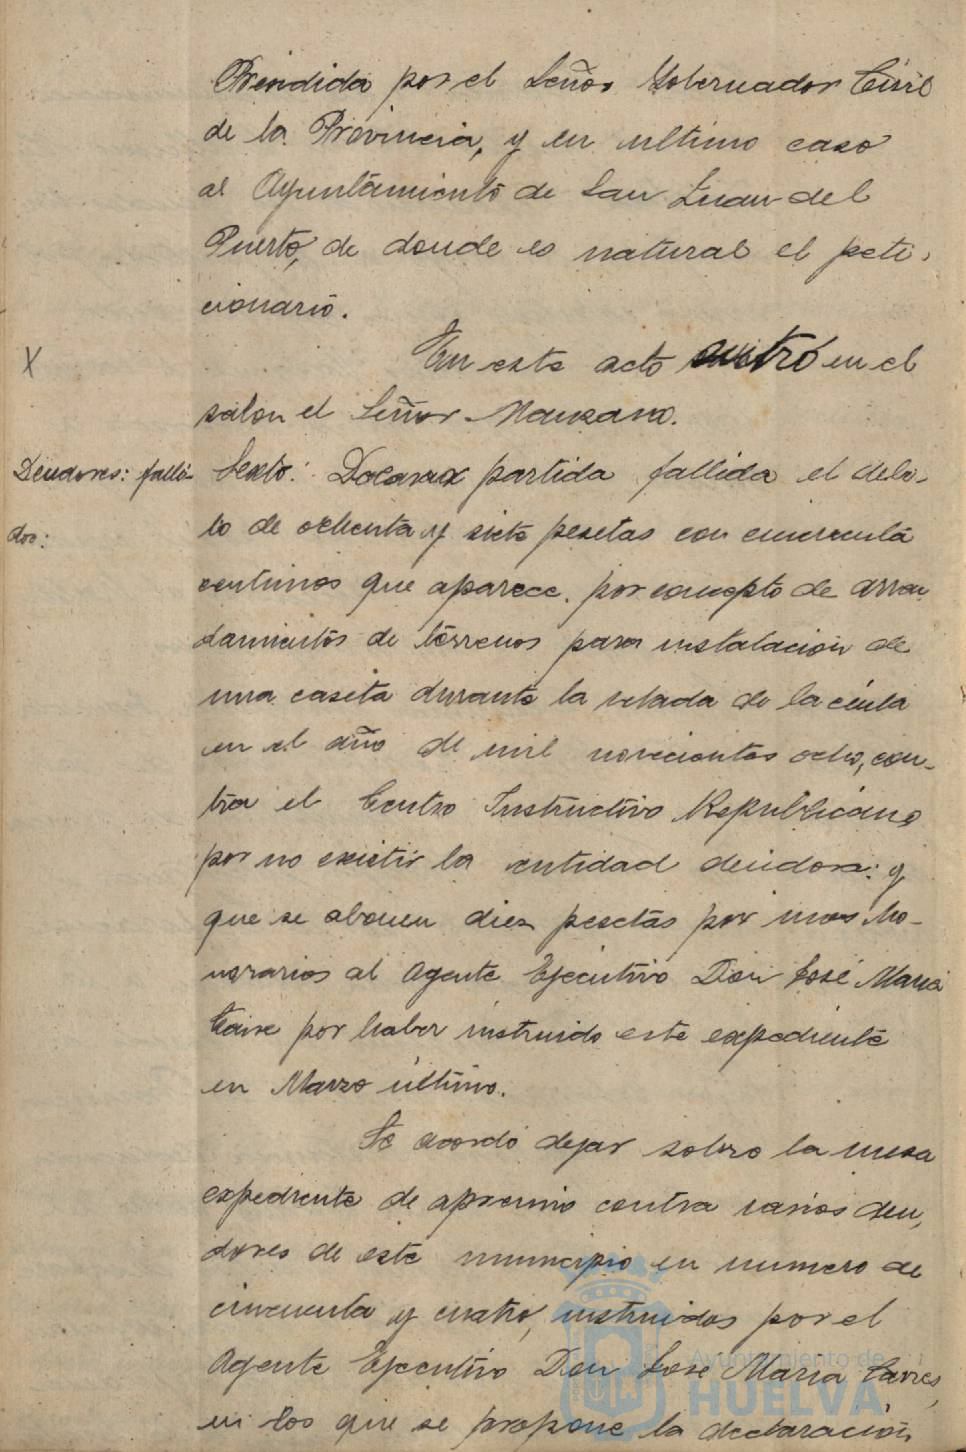 Prendida por el Señor Gobernador Civil
de la Provincia, y en ultimo caso
al Ayuntamiento de San Juan del
Puerto, de donde es natural el peti-
cionario.
X
En este acto entró en el
salon el Señor Manzano.
Deudores: falli-
dos:
Sexto: Declarar partida fallida el debi-
to de ochenta y siete pesetas con cincuenta
centimos que aparece por concepto de arren
damientos de terrenos para instalación de
una caseta durante la velada de la cinta
en el año de mil novecientos ocho, con-
tra el Centro Instructivo Republicano
por no existir la entidad deudora: y
que se abonen diez pesetas por unos ho-
norarios al Agente Ejecutivo Don José Maria
por haber instruido este expediente
en Marzo último.
Se acordó dejar sobre la mesa
expediente de apremio contra varios deu-
dores de este municipio en numero de
cincuenta y cuatro, instruidos por el
Agente Ejecutivo Don José Maria
en los que se propone la declaración
Ayuntamiento de
HUELVA